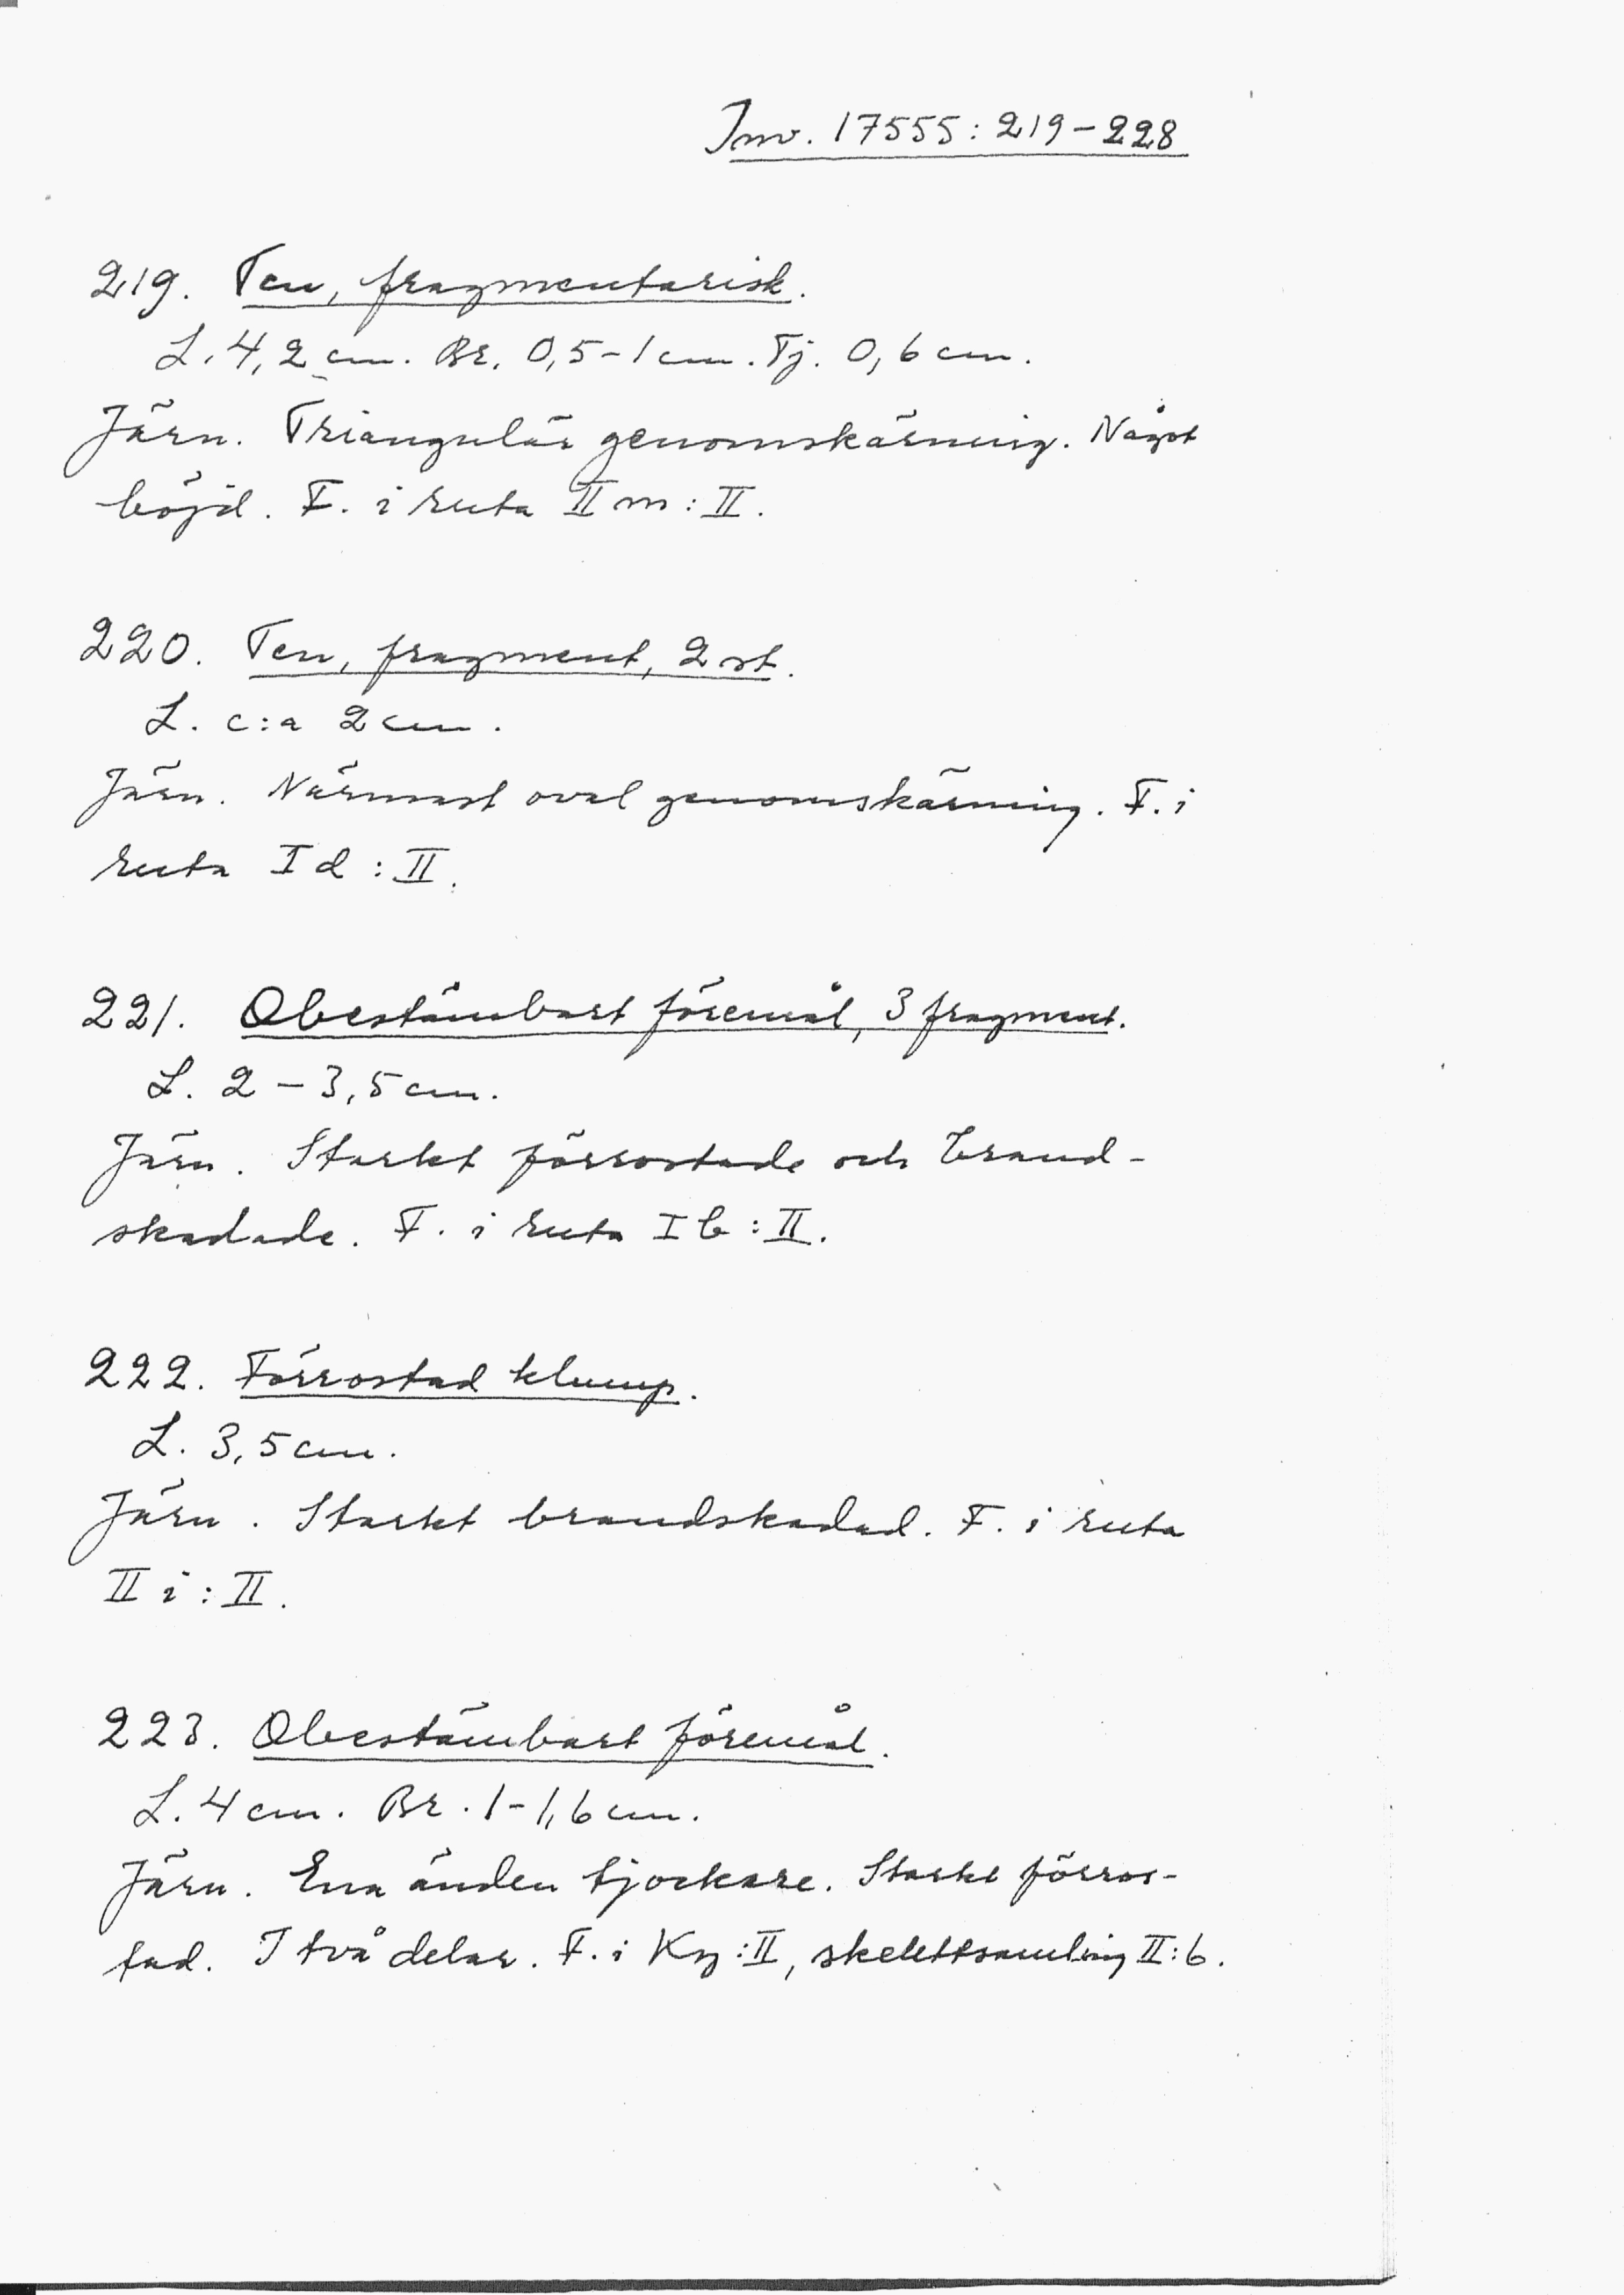 Inv. 17555: 219-228
219. Ten, fragmentarisk.
L. 4,2 cm. Br. 0,5-1 cm. Tj. 0,6 cm.
Järn. Triangulär genomskärning. Något
böjd. F. i ruta II m : II.
220. Ten, fragment, 2 st.
L. c:a 2 cm.
Järn. Närmast oval genomskärning. F. i
ruta I d : II.
221. Obestämbart föremål, 3 fragment.
L. 2 - 3,5 cm.
Järn. Starkt förrostade och brand-
skadade. F. i ruta I b : II.
222. Förrostad klump.
L. 3,5 cm.
Järn. Starkt brandskadad. F. i ruta
II i : II.
223. Obestämbart föremål.
L. 4 cm. Br. 1-1,6 cm.
Järn. Ena änden tjockare. Starkt förros-
tad. I två delar. F. i :II, skelettsamling II:6.